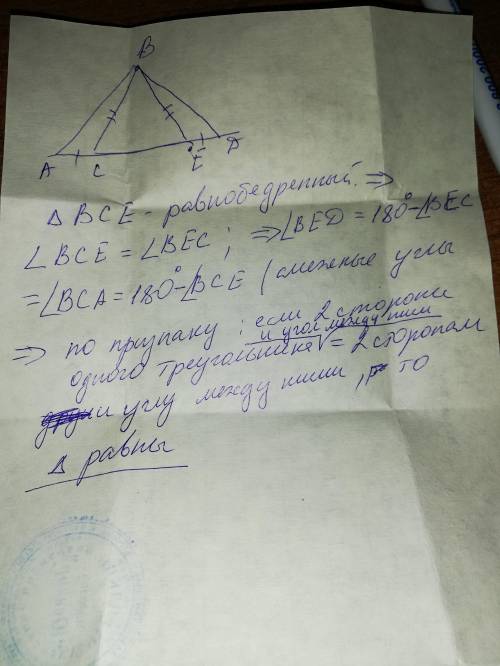 B
A C E D
Δ BCE - равнобедренный. ⇒
∠BCE = ∠BEC; ⇒ ∠BED = 180° - ∠BEC
= ∠BCA = 180° - ∠BCE (смежные углы
⇒ по признаку: если 2 стороны
и угол между ними
одного треугольника √ = 2 сторонам
и углу между ними, то
Δ равны